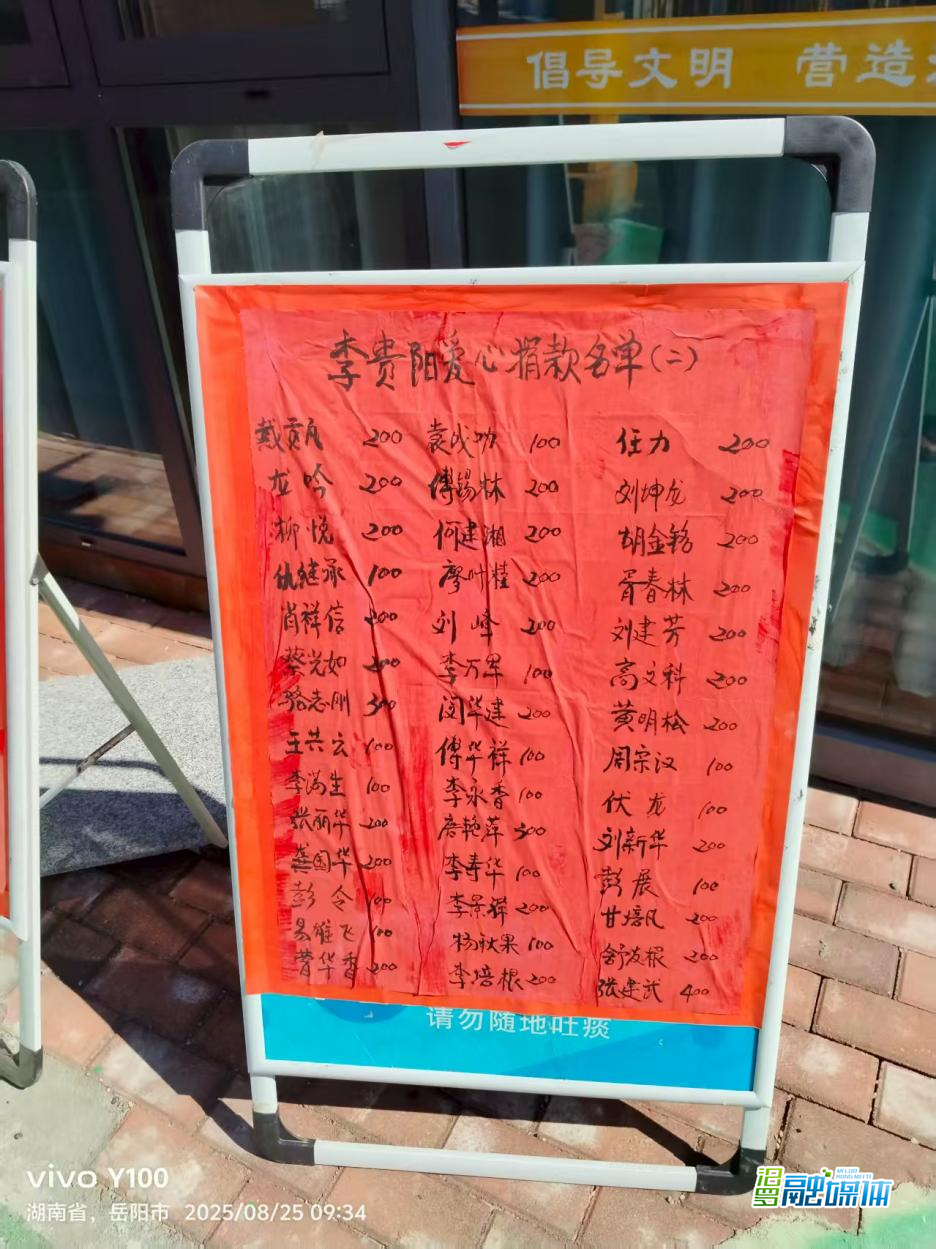 倡导文明 营造
李贵阳爱心捐款名单(二)
戴贡成 200 袁成功 100 任力 200
龙吟 200 傅锡林 200 刘坤龙 200
柳悦 200 何建湘 200 胡金铭 200
仇继承 100 廖叶桂 200 胥春林 200
肖祥信 200 刘峰 200 刘建芳 200
蔡光如 200 李万军 100 高文科 200
骆志刚 300 闵华建 200 黄明桧 200
王共云 100 傅华祥 100 周宗汉 100
李海生 100 李永香 100 伏龙 100
张丽华 200 唐艳萍 300 刘新华 200
龚国华 200 李寿华 100 彭展 100
彭令 100 李景祥 200 甘培凡 200
易雄飞 100 杨秋果 100 舒友根 200
曹华香 200 李培根 200 张建武 400
请勿随地吐痰
vivo Y100
湖南省,岳阳市 2025/08/25 09:34
汨罗融媒体
MILUO RONG MEITI